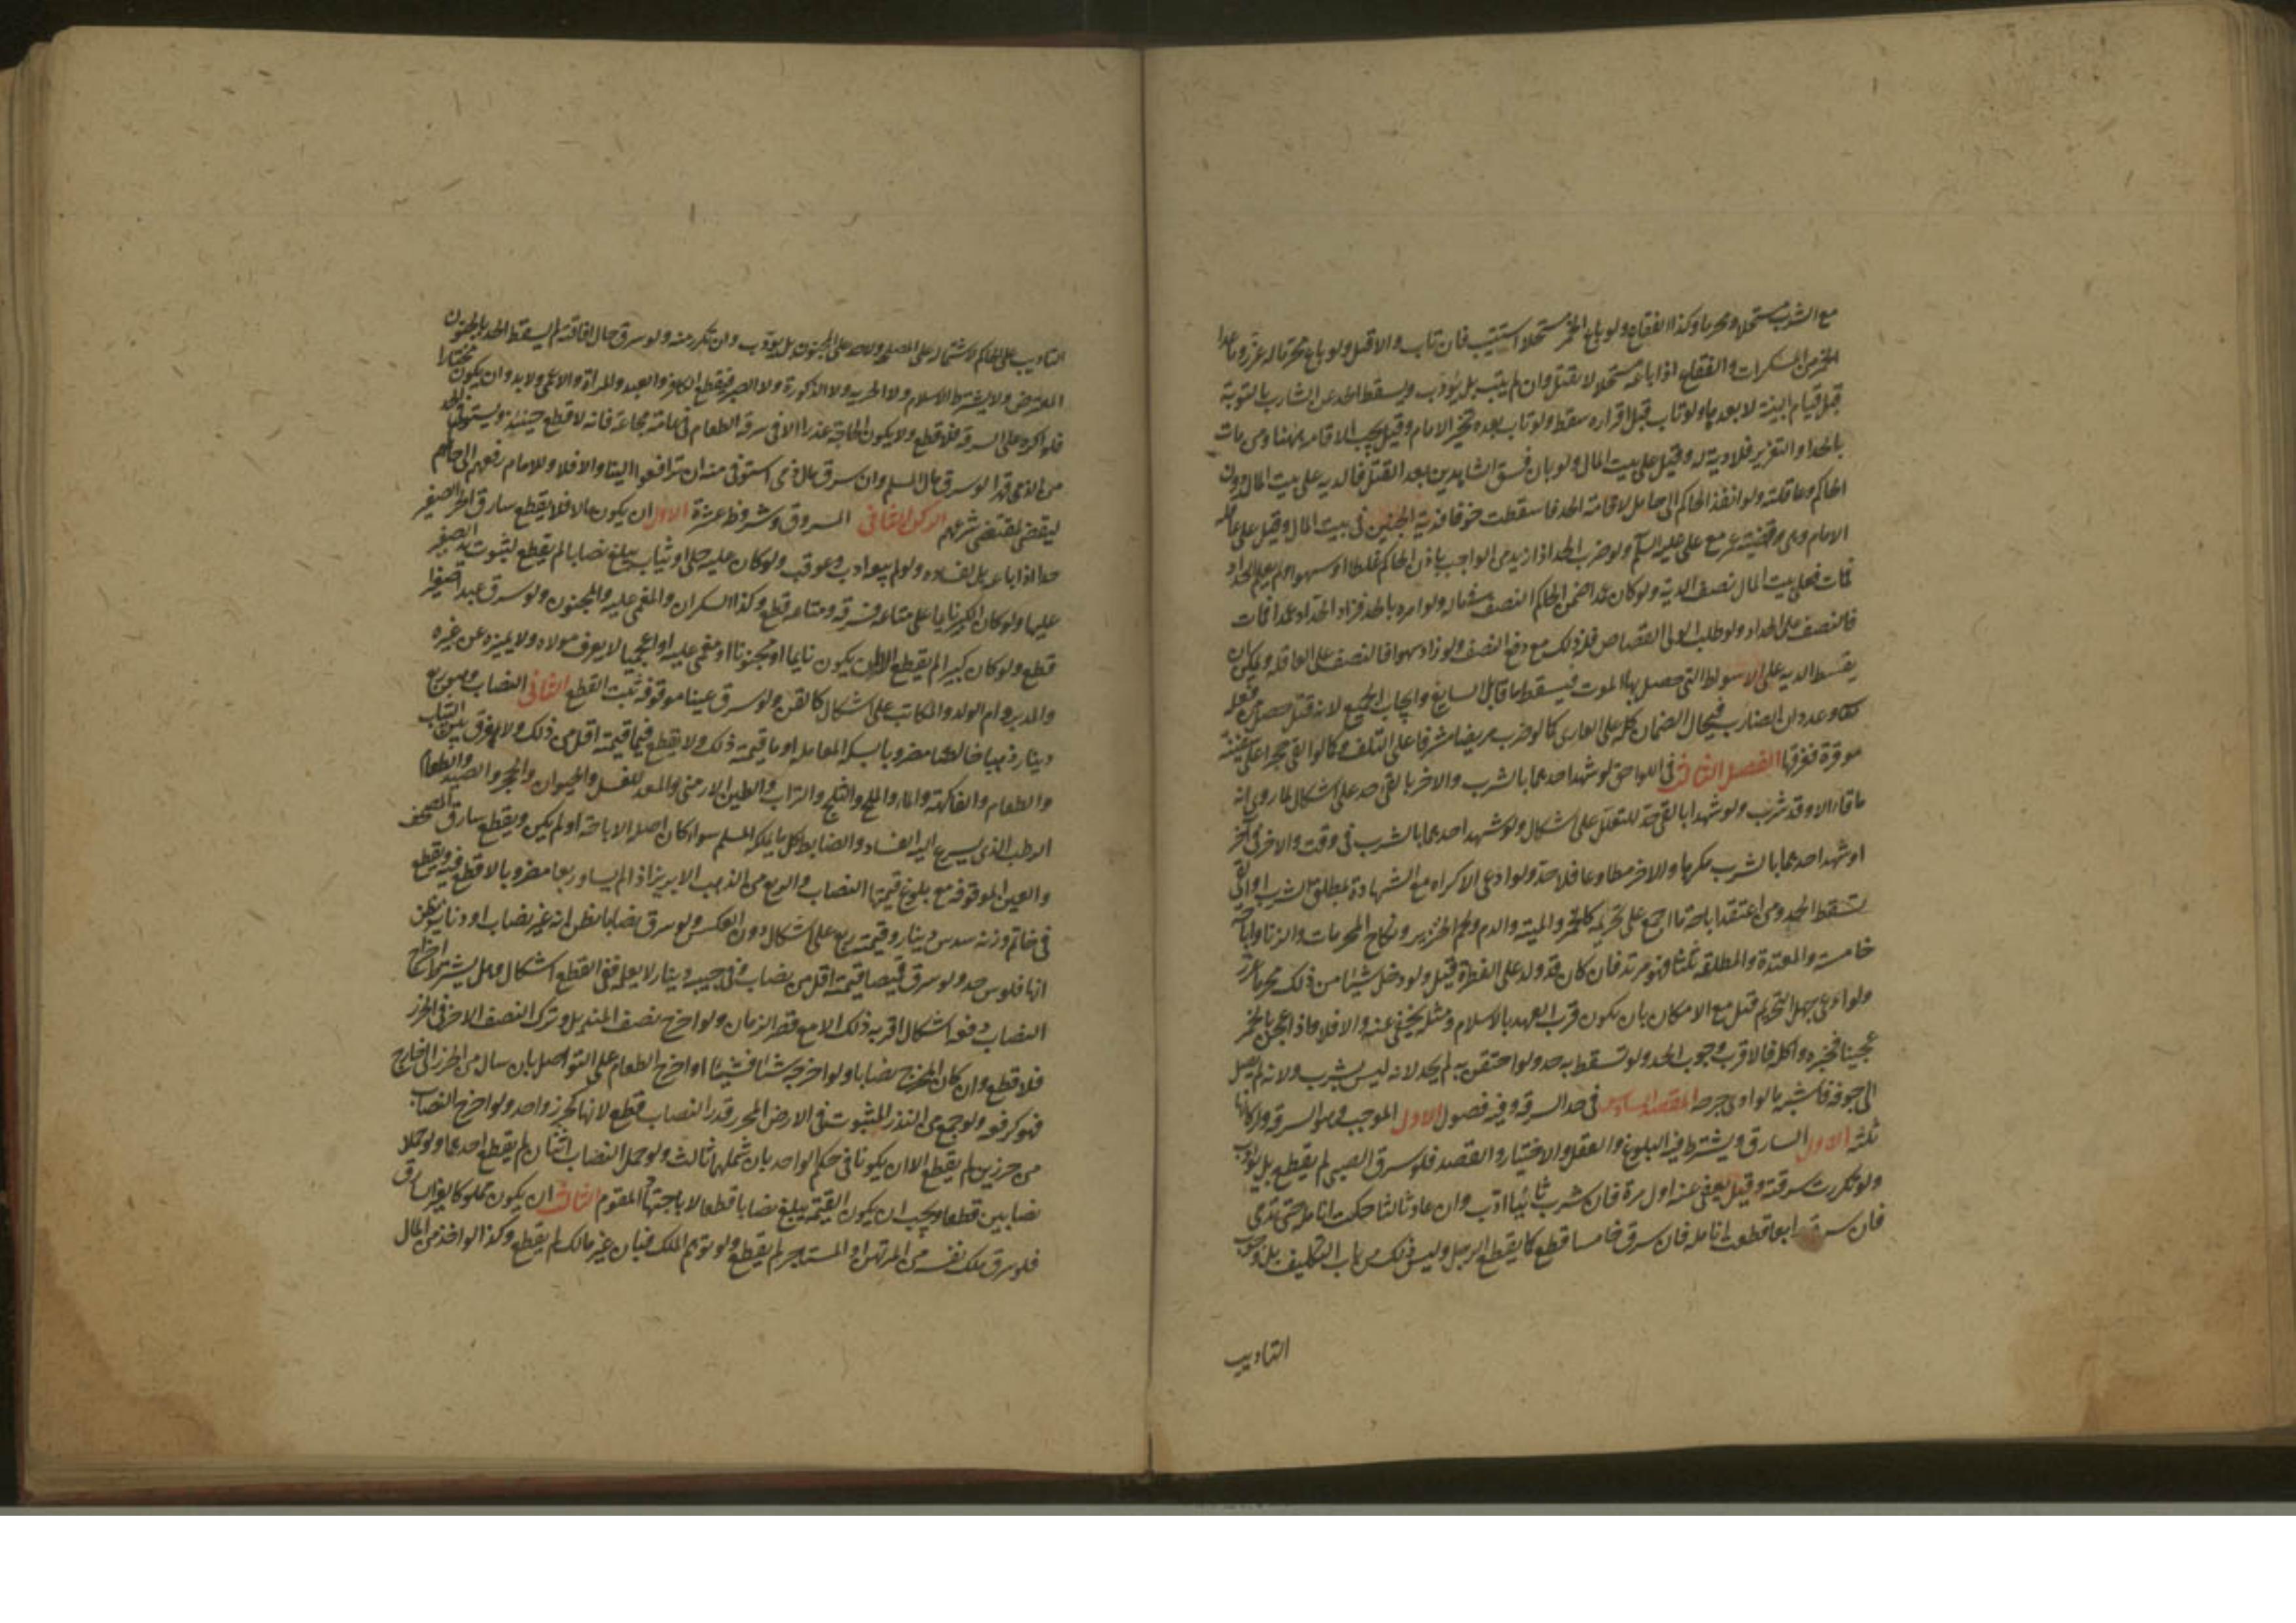 مع الشرب مستحلا ومحرما وكذا الفقاع ولو باع الخمر مستحلا استتيب فان تاب والا قتل ولو باع محرما له عزر وما عدا
الخمر من المسكرات والفقاع اذا باعه مستحلا لا يقتل وان لم يتب بل يؤدب ويسقط الحد عن الشارب بالتوبة
قبل قيام البينة لا بعدها ولو تاب قبل اقراره سقط ولو تاب بعده تخير الامام وقيل يجب الاقامة هنا ومن مات
بالحد او التعزير فلا دية له وقيل على بيت المال ولو بان فسق الشاهدين بعد القتل فالدية على بيت المال دون
الحاكم وعاقلته ولو انفذ الحاكم الى حامل لاقامة الحد فاسقطت خوفا فدية الجنين فى بيت المال وقيل على عاقلة
الامام وهى قضية عمر مع على عليه السلم ولو ضرب الحد ازيد من الواجب باذن الحاكم غلطا او سهوا ولم يعلم الحداد
فمات فعلى بيت المال نصف الدية ولو كان عمدا ضمن الحاكم النصف فى ماله ولو امره بالحد فزاد الحداد عمدا فمات
فالنصف على الحداد ولو طلب الولى القصاص فله ذلك مع دفع النصف ولو زاد سهوا فالنصف على العاقلة ويمكن ان
يقسط الدية على الاسواط التى حصل بها الموت فيسقط ما قابل السايغ وايجاب الجميع لانه قتل حصل من فعله
تعالى وعدوان الضارب فيحال الضمان كله على العادى كما لو ضرب مريضا مشرفا على التلف وكما لو القى حجرا على سفينة
موقرة فغرقها الفصل الثالث فى اللواحق لو شهد احدهما بالشرب والاخر بالقى حد على اشكال لما روى انه
ما قاءها الا وقد شرب ولو شهدا بالقى حد للتعليل على اشكال ولو شهد احدهما بالشرب فى وقت والاخر فى اخر
او شهد احدهما بالشرب مكرها والاخر مطاوعا فلا حد ولو ادعى الاكراه مع الشهادة بمطلق الشرب او القى
سقط الحد ومن اعتقد اباحة ما اجمع على تحريمه كالخمر والميتة والدم ولحم الخنزير ونكاح المحرمات والزنا واباحة
خامسة والمعتدة والمطلقة ثلثا فهو مرتد فان كان قد ولد على الفطرة قتل ولو دخل شيئا من ذلك محرما عزر
ولو ادعى جهل التحريم قبل مع الامكان بان يكون قريب العهد بالاسلام ومثله يخفى عنه والا فلا واذا عجن بالخمر
عجينا فخبزه واكله فالاقرب وجوب الحد ولو تسعط به حد ولو احتقن به لم يحد لانه ليس بشرب ولانه لم يصل
الى جوفه فاشبه ما لو داوى جرحه المقصد السادس فى حد السرقة وفيه فصول الاول الموجب وهو السرقة واركانها
ثلثة الاول السارق ويشترط فيه البلوغ والعقل والاختيار والقصد فلو سرق الصبى لم يقطع بل يؤدب
ولو تكررت سرقته وقيل يعفى عنه اول مرة فان سرق ثانيا ادب وان عاد ثالثا حكت انامله حتى تدمى
فان سرق رابعا قطعت انامله فان سرق خامسا قطع كما يقطع الرجل وليس ذلك من باب التكليف بل وجوب
التاديب
التاديب على الحاكم لاشتماله على المصلحة ولا حد على المجنون بل يؤدب وان تكرر منه ولو سرق حال افاقته لم يسقط الحد بالجنون
المعترض ولا يشترط الاسلام ولا الحرية ولا الذكورة ولا البصر فيقطع الكافر والعبد والمراة والاعمى ولا بد وان يكون مختارا
فلو اكره على السرقة فلا قطع ولا يكون الحاجة عذرا الا فى سرقة الطعام فى عام مجاعة فانه لا قطع حينئذ ويستوفى الحد
من الذمى قهرا لو سرق مال المسلم وان سرق مال ذمى استوفى منه ان ترافعوا الينا والا فلا وللامام رفعهم الى حاكمهم
ليقضى بمقتضى شرعهم الركن الثانى المسروق وشروطه عشرة الاول ان يكون مالا فلا يقطع سارق الحر الصغير
حدا اذا باعه بل لفساده ولو لم يبعه ادب وعوقب ولو كان عليه حلى او ثياب يبلغ نصابا لم يقطع لثبوت يد الصغير
عليها ولو كان الكبير نايما على متاعه فسرقه ومتاعه قطع وكذا السكران والمغمى عليه والمجنون ولو سرق عبدا صغيرا
قطع ولو كان كبيرا لم يقطع الا ان يكون نايما او مجنونا او مغمى عليه او اعجميا لا يعرف مولاه ولا يميزه عن غيره
والمدبر وام الولد والمكاتب على اشكال كالقن ولو سرق عينا موقوفة ثبت القطع الثانى النصاب وهو ربع
دينار ذهبا خالصا مضروبا بسكة المعاملة او ما قيمته ذلك ولا يقطع فيما قيمته اقل من ذلك ولا فرق بين الثياب
والطعام والفاكهة والماء والملح والثلج والتراب والطين الارمنى والمعد للغسل والحيوان والحجر والصيد والطعام
الرطب الذى يسرع اليه الفساد والضابط كل ما يملكه المسلم سواء كان اصله الاباحة او لم يكن ويقطع سارق المصحف
والعين الموقوفة مع بلوغ قيمتها النصاب والربع من الذهب الابريز اذا لم يساو ربعا مضروبا لا قطع فيه ويقطع
فى خاتم وزنه سدس دينار وقيمته ربع على اشكال دون العكس ولو سرق نصابا بظن انه غير نصاب او دنانير بظن
انها فلوس حد ولو سرق قميصا قيمته اقل من نصاب وفى جيبه دينار لا يعلمه ففى القطع اشكال وهل يشترط اخراج
النصاب دفعة اشكال اقربه ذلك الا مع قصر الزمان ولو اخرج نصف المنديل وترك النصف الاخر فى الحرز
فلا قطع وان كان المخرج نصابا ولو اخرجه شيئا فشيئا او اخرج الطعام على التواصل بان سال من الحرز الى خارج
فهو كدفعة ولو جمع من البذر المبثوث فى الارض المحرزة قدر النصاب قطع لانها كحرز واحد ولو اخرج النصاب
من حرزين لم يقطع الا ان يكونا فى حكم الواحد بان شملهما ثالث ولو حمل النصاب اثنان لم يقطع احدهما ولو حملا
نصابين قطعا ويجب ان يكون القيمة يبلغ نصابا قطعا لا باجتهاد المقوم الثالث ان يكون مملوكا لغير السارق
فلو سرق ملك نفسه من المرتهن او المستاجر لم يقطع ولو توهم الملك فبان غير مالك لم يقطع وكذا لو اخذ من المال